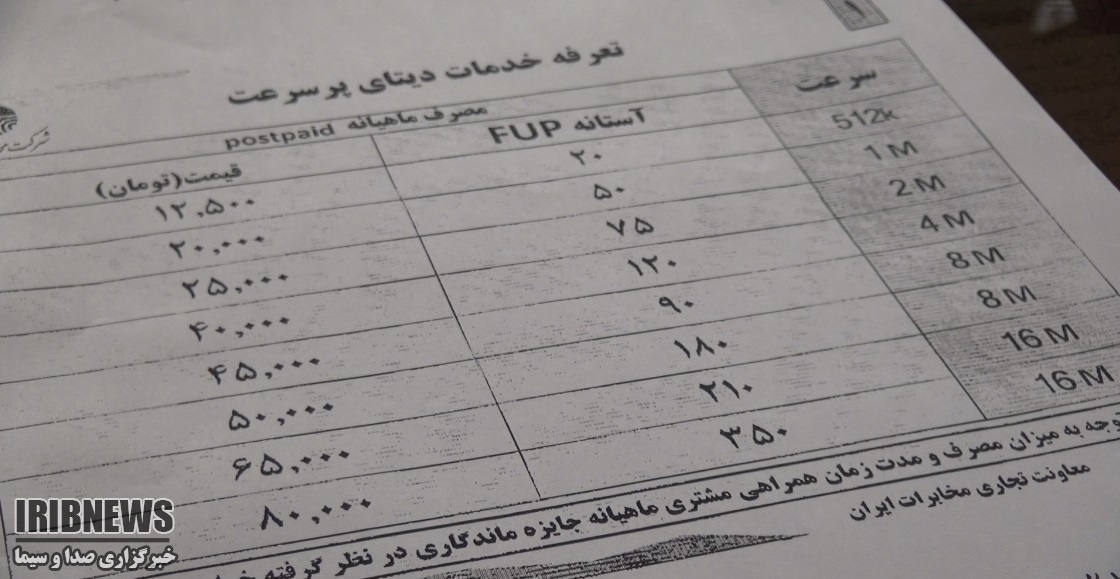 ۱
تعرفه خدمات دیتای پر سرعت
مصرف ماهیانه postpaid
سرعت آستانه FUP قیمت(تومان)
512k ۲۰ ۱۲.۵۰۰
1M ۵۰ ۲۰,۰۰۰
2M ۷۵ ۲۵,۰۰۰
4M ۱۲۰ ۴۰,۰۰۰
8M ۹۰ ۴۵,۰۰۰
8M ۱۸۰ ۵۰,۰۰۰
16M ۲۱۰ ۶۵,۰۰۰
16M ۳۵۰ ۸۰,۰۰۰
به میزان مصرف و مدت زمان همراهی مشتری ماهیانه جایزه ماندگاری در نظر گرفته
معاونت تجاری مخابرات ایران
شرکت
IRIBNEWS
خبرگزاری صدا و سیما